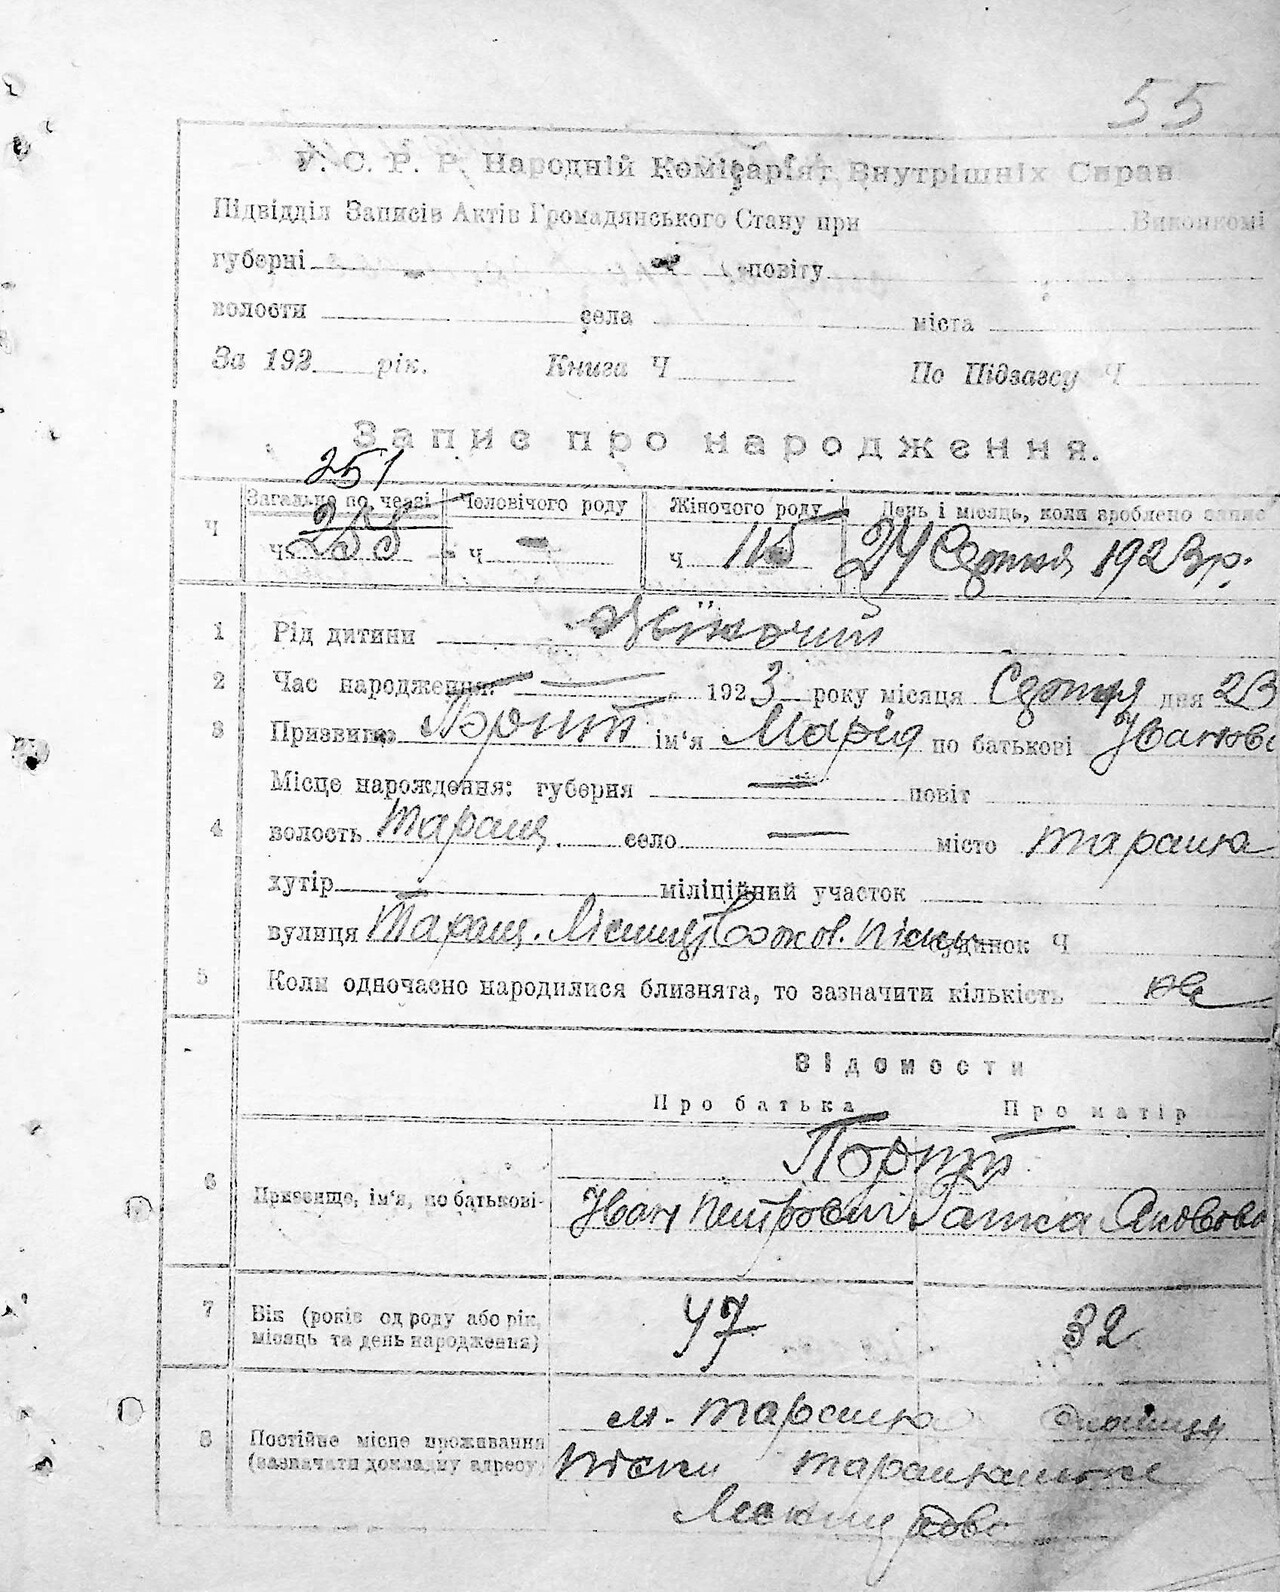 55
У. С. Р. Р. Народній Комісаріят Внутрішніх Справ
Підвідділ Записів Актів Громадянського Стану при Виконкомі
губерні повіту
волости села міста
За 192 рік. Книга Ч По Підзагсу Ч
Запис про народження.
251
Загальне по черзі Чоловічого роду Жіночого роду День і місяць, коли зроблено запис
Ч ч. 258 ч — ч 115 24 Серпня 1923 р.
1 Рід дитини Жіночий
2 Час народження: — 1923 року місяця Серпня дня 23
3 Призвище Порит ім'я Марія по батькові Іванов
Місце народження: губерня — повіт
4 волость Таращ. село — місто Тараща
хутір міліційний участок
вулиця Таращ. Піски будинок Ч
5 Коли одночасно народилися близнята, то зазначити кількість не
Відомости
Про батька Про матір
Порит
6 Призвище, ім'я, по батькові Іван Петрович Ганна Яковова
7 Вік (років од роду або рік, 47 32
місяць та день народження)
м. Тараща вулиця
8 Постійне місце проживання Піски
(зазначати докладну адресу)